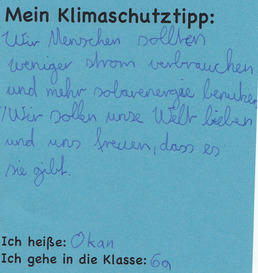 Mein Klimaschutztipp:
Wir Menschen sollten
weniger strom verbrauchen
und mehr solarenergie benutzen
Wir sollen unse Welt lieben
und uns freuen, dass es
sie gibt.
Ich heiße: Okan
Ich gehe in die Klasse: 6a